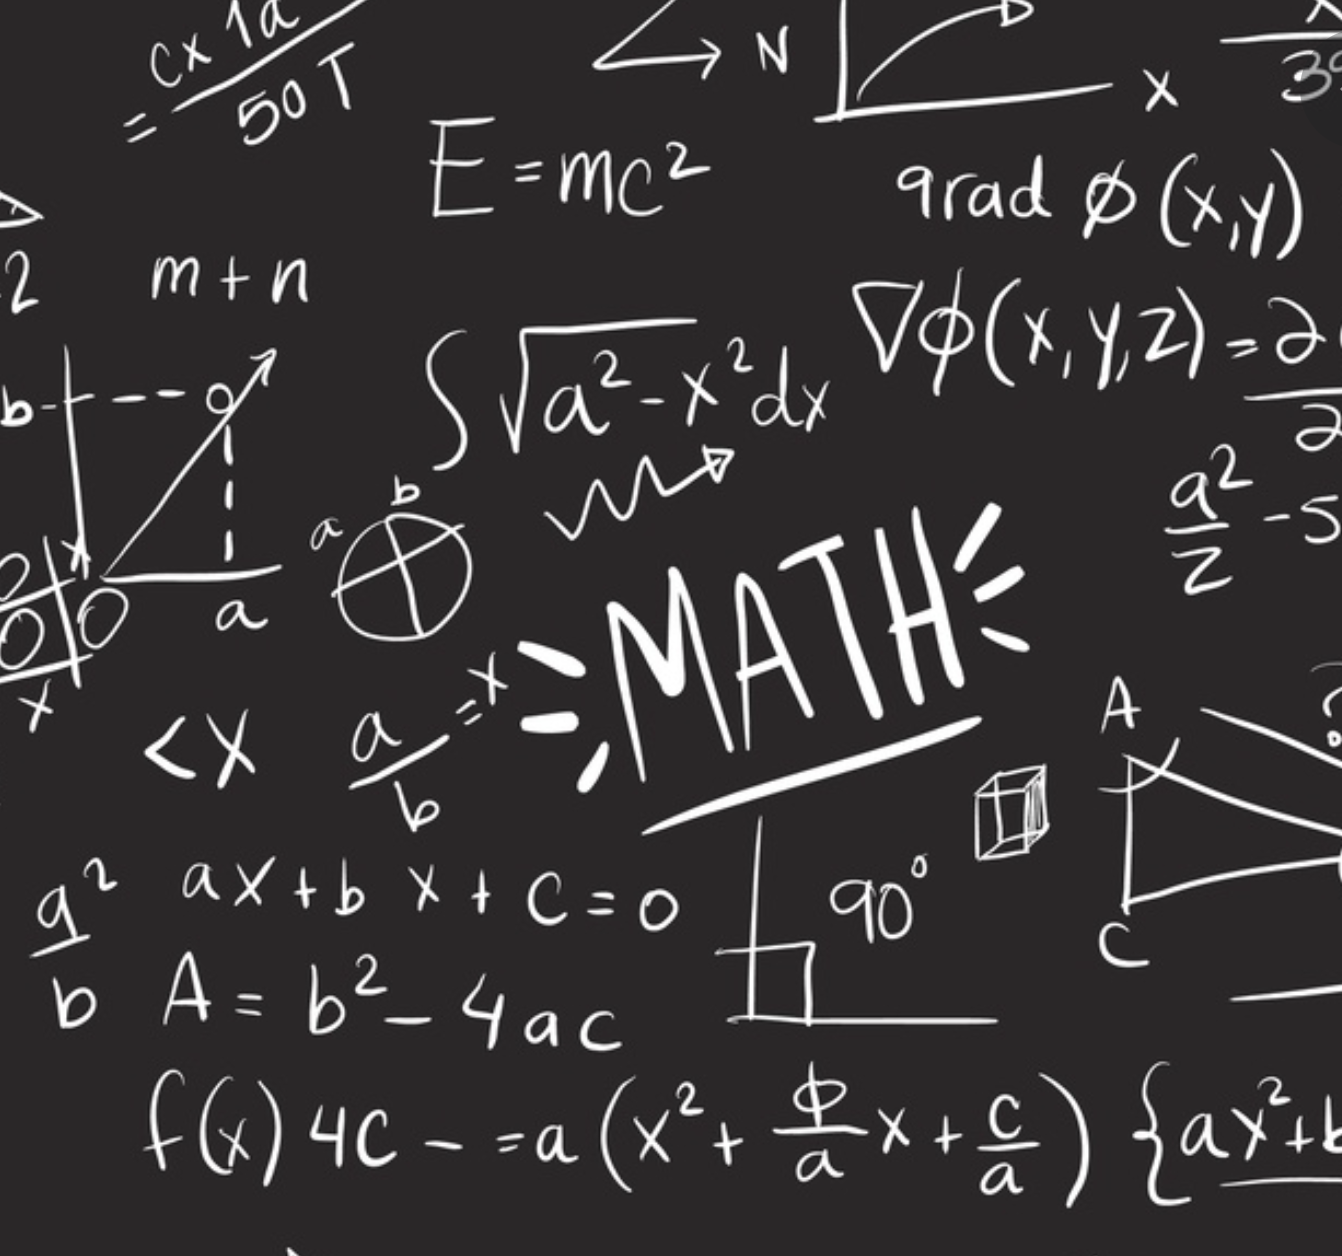 cx 1a
= 50 T
N
x
E = mc²
grad ϕ (x,y)
2
m + n
∇ϕ(x,y,z) = ∂
∂
b
∫√a² - x² dx
a²/z - 5
a b
O a
MATH
x
<x
a/b = x
A
a²/b
ax + b x + c = 0
90°
C
A = b² - 4ac
f(x) 4c - = a (x² + ϕ/a x + c/a) {ax² + b